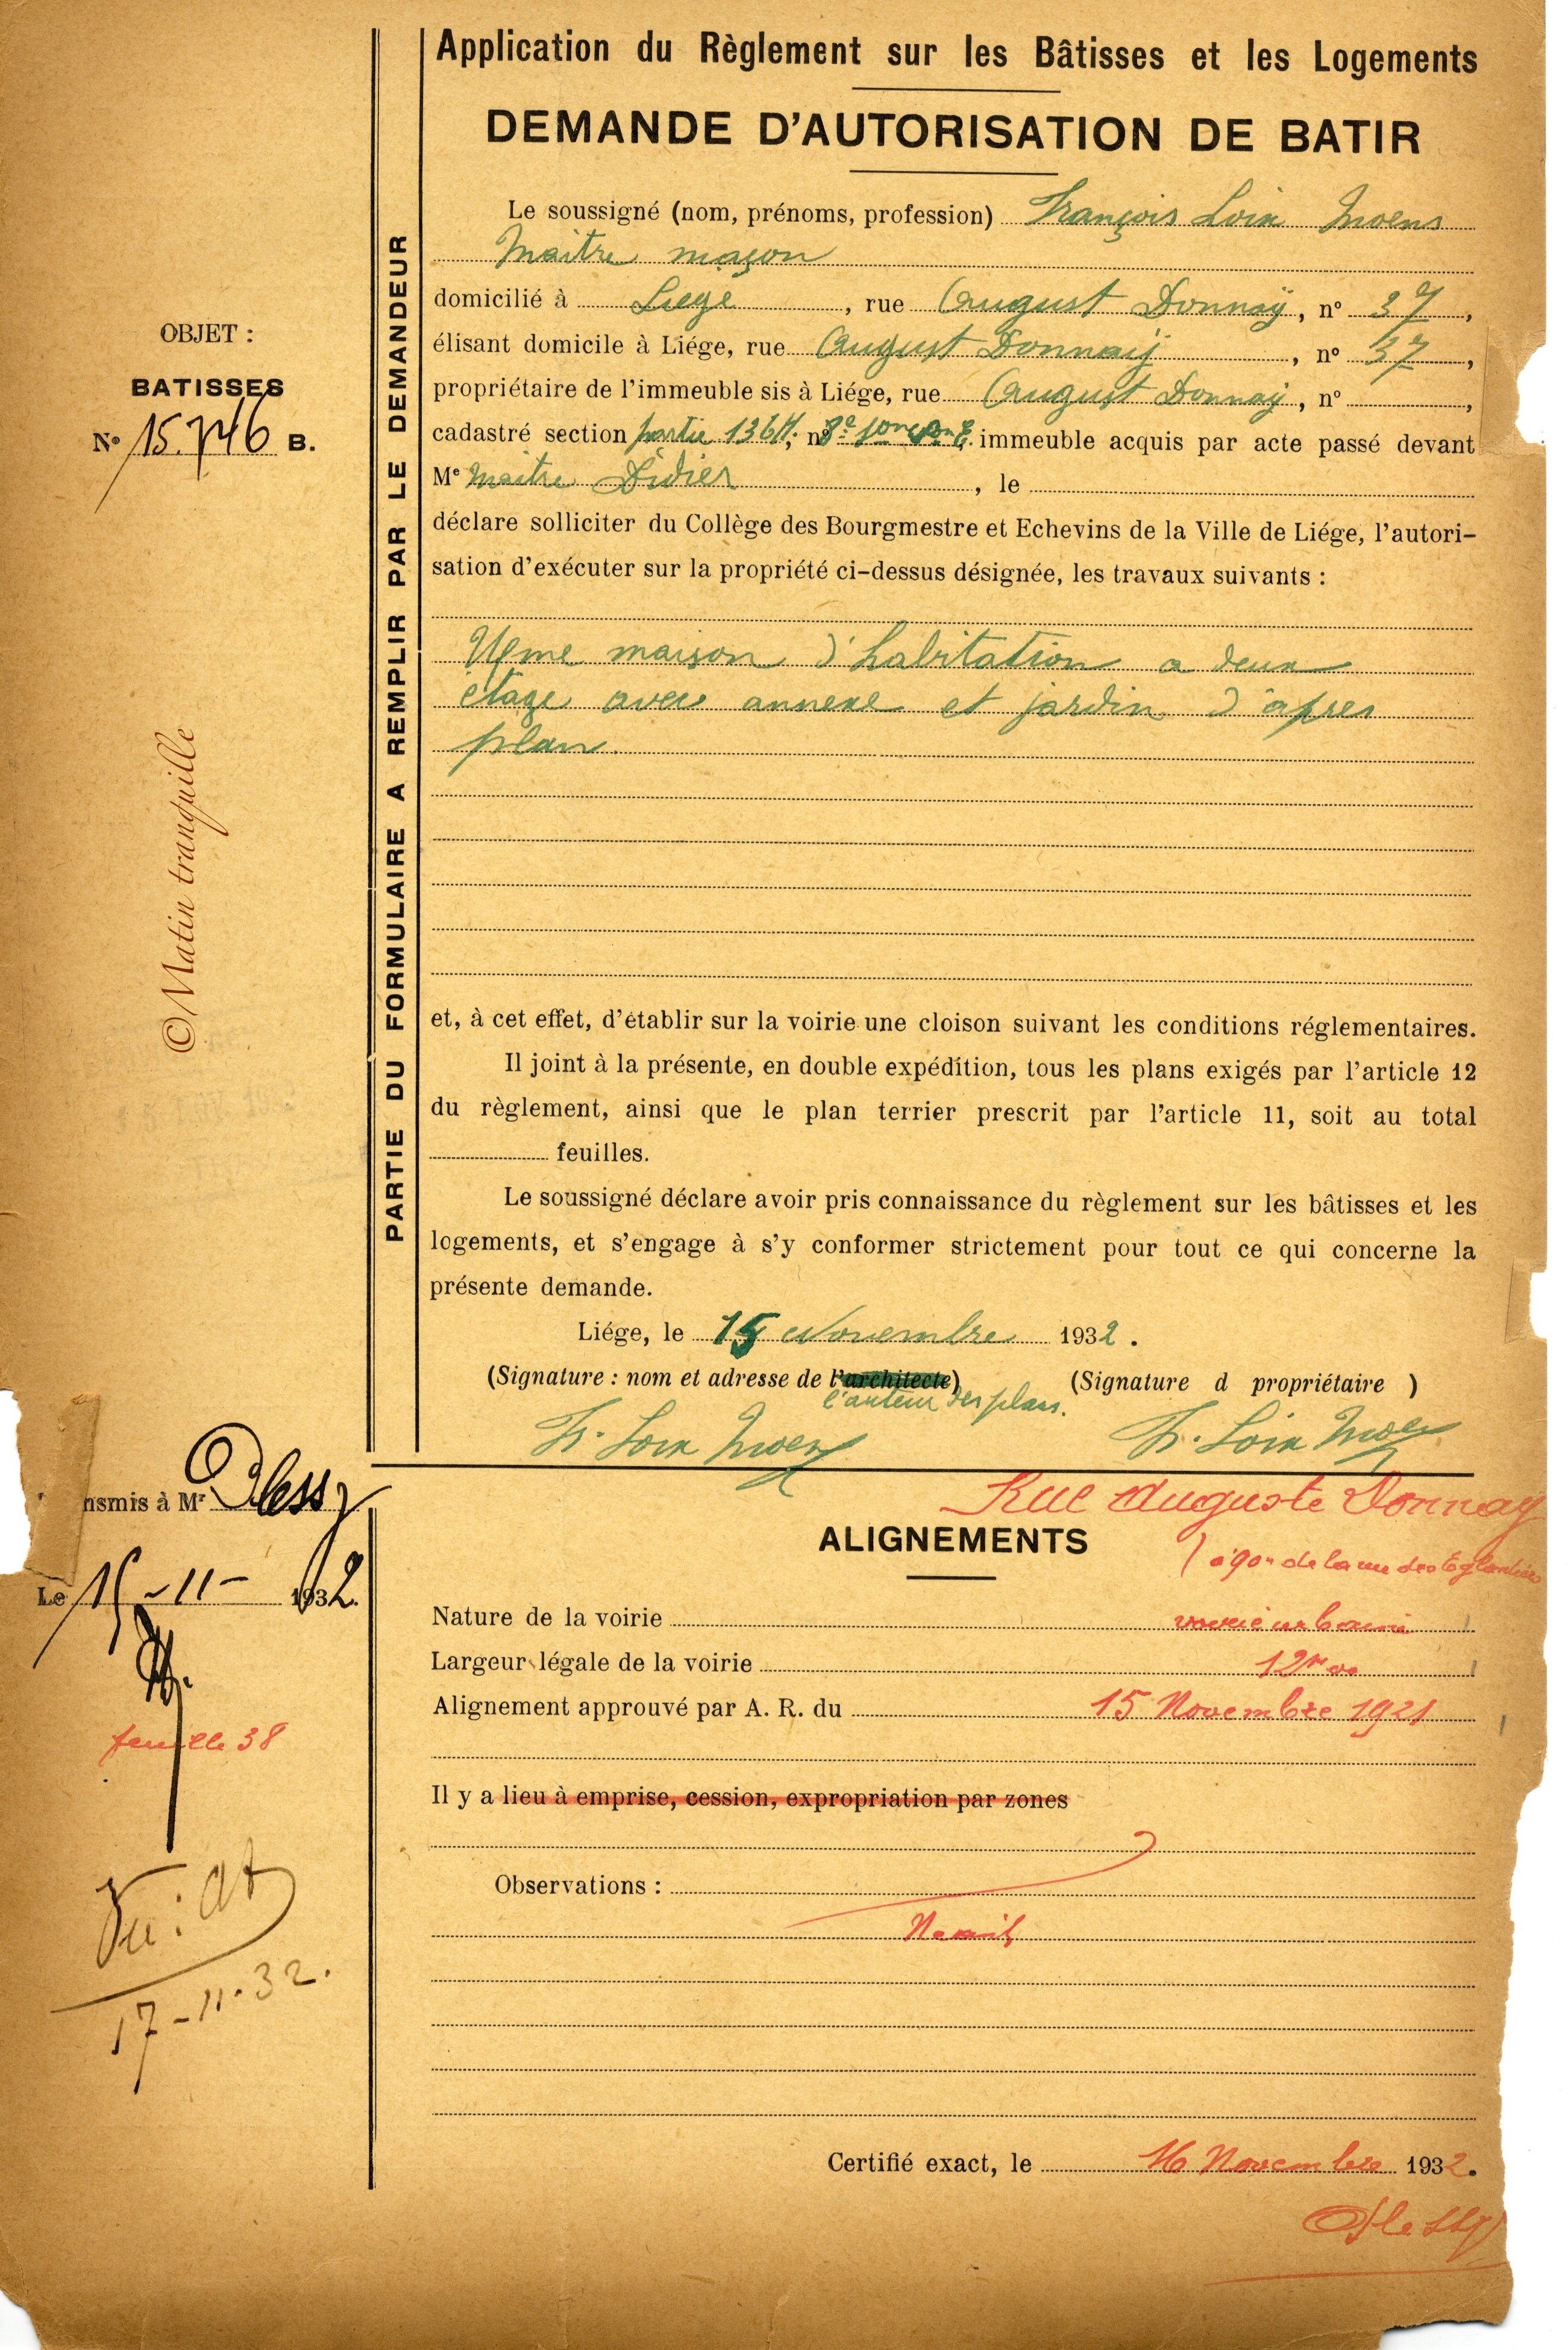 Application du Règlement sur les Bâtisses et les Logements
DEMANDE D'AUTORISATION DE BATIR
PARTIE DU FORMULAIRE A REMPLIR PAR LE DEMANDEUR
OBJET :
BATISSES
N° 15.746 B.
©Matin tranquille
Le soussigné (nom, prénoms, profession) François Loix Moens
Maitre maçon
domicilié à Liege, rue August Donnaÿ, n° 37,
élisant domicile à Liége, rue August Donnaij, n° 37,
propriétaire de l'immeuble sis à Liége, rue August Donnaÿ, n° ,
cadastré section partie 136H, n° immeuble acquis par acte passé devant
Me Maitre Didier, le
déclare solliciter du Collège des Bourgmestre et Echevins de la Ville de Liége, l'autori-
sation d'exécuter sur la propriété ci-dessus désignée, les travaux suivants :
maison d'habitation a deux
etage avec annexe et jardin d'apres
plan.
et, à cet effet, d'établir sur la voirie une cloison suivant les conditions réglementaires.
Il joint à la présente, en double expédition, tous les plans exigés par l'article 12
du règlement, ainsi que le plan terrier prescrit par l'article 11, soit au total
feuilles.
Le soussigné déclare avoir pris connaissance du règlement sur les bâtisses et les
logements, et s'engage à s'y conformer strictement pour tout ce qui concerne la
présente demande.
Liége, le 15 Novembre 1932.
(Signature : nom et adresse de l'architecte) (Signature d propriétaire )
l'auteur des plans.
Fr. Loix Moens Fr. Loix Moens
nsmis à Mr Dlessy
Le 15-11-1932.
feuille 38
Vu :
17-11-32.
Rue Auguste Donnay
ALIGNEMENTS
de la rue des Eglantiers
Nature de la voirie voirie urbaine
Largeur légale de la voirie 12m00
Alignement approuvé par A. R. du 15 Novembre 1921
Il y a lieu à emprise, cession, expropriation par zones
Observations :
Certifié exact, le 16 Novembre 1932.